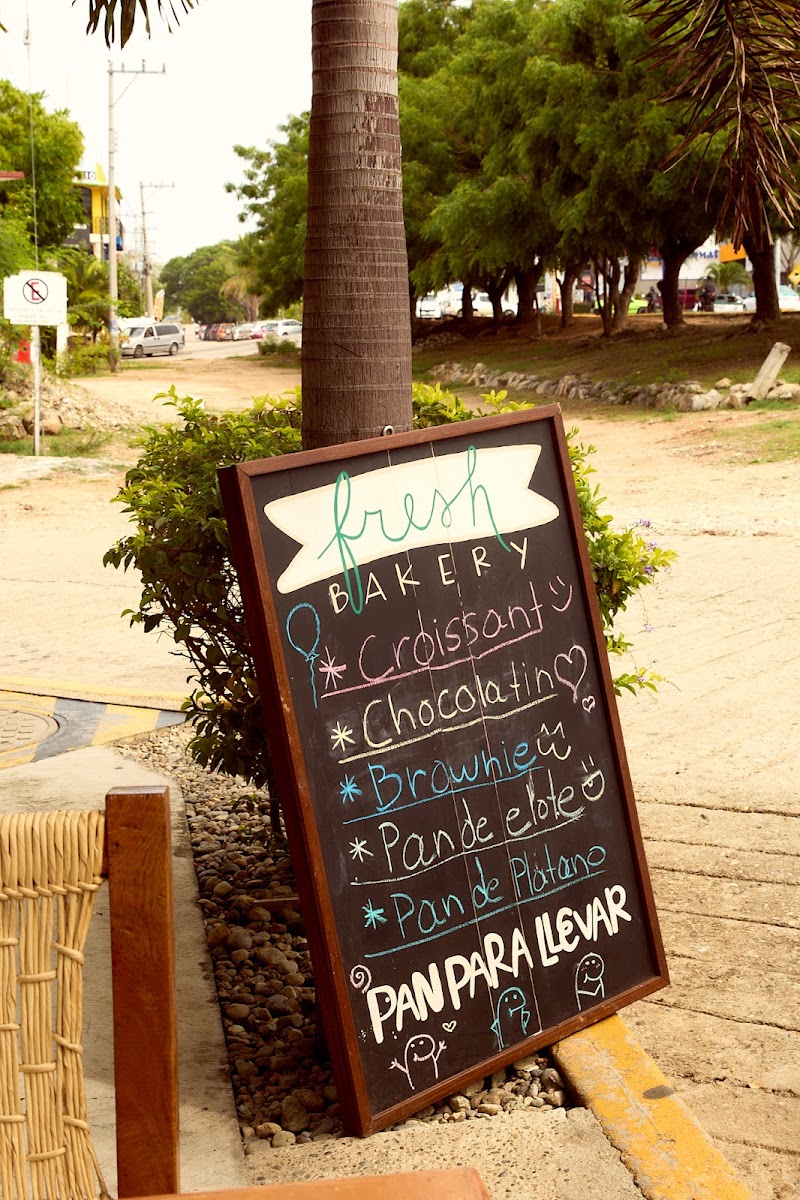 fresh
BAKERY
* Croissant
* Chocolatin
* Brownie
* Pan de elote
* Pan de Plátano
PAN PARA LLEVAR
E